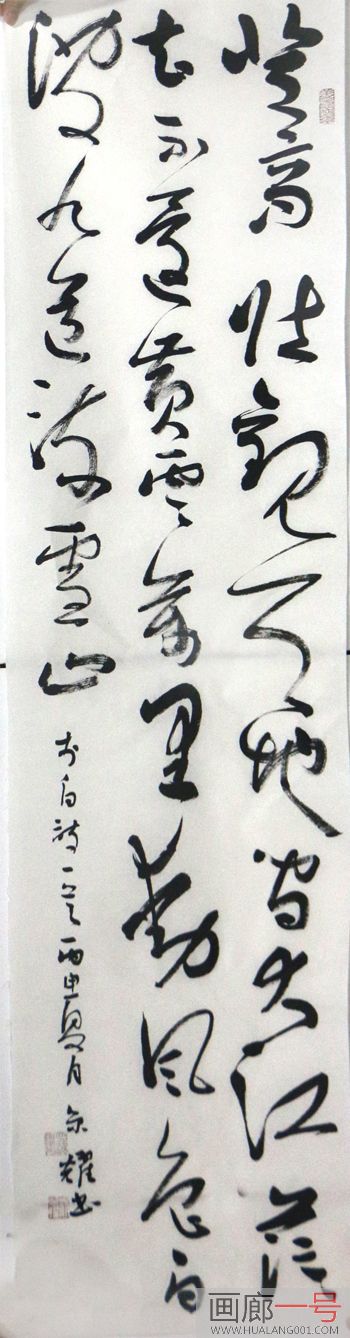 登高壮觀天地間大江茫茫
去不還黄雲萬里動風色白
波九道流雪山
李白詩一首丙申夏月 耀書
画廊一号
WWW.HUALANG001.COM